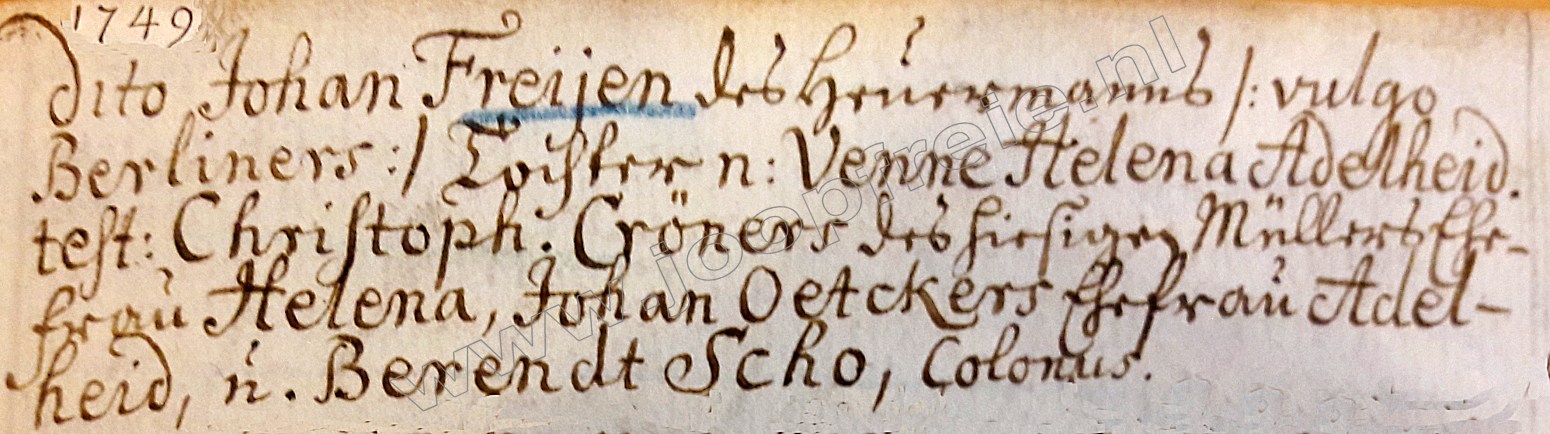 1749
dito Johan Freijen des Heuermanns /: vulgo
Berliners :/ Tochter n: Venne Helena Adelheid.
test: Christoph. Cröners des hiesigen Müllers Ehe-
frau Helena, Johan Oetckers Ehefrau Adel-
heid, u. Berendt Scho, Colonus.
www.joopfreie.nl